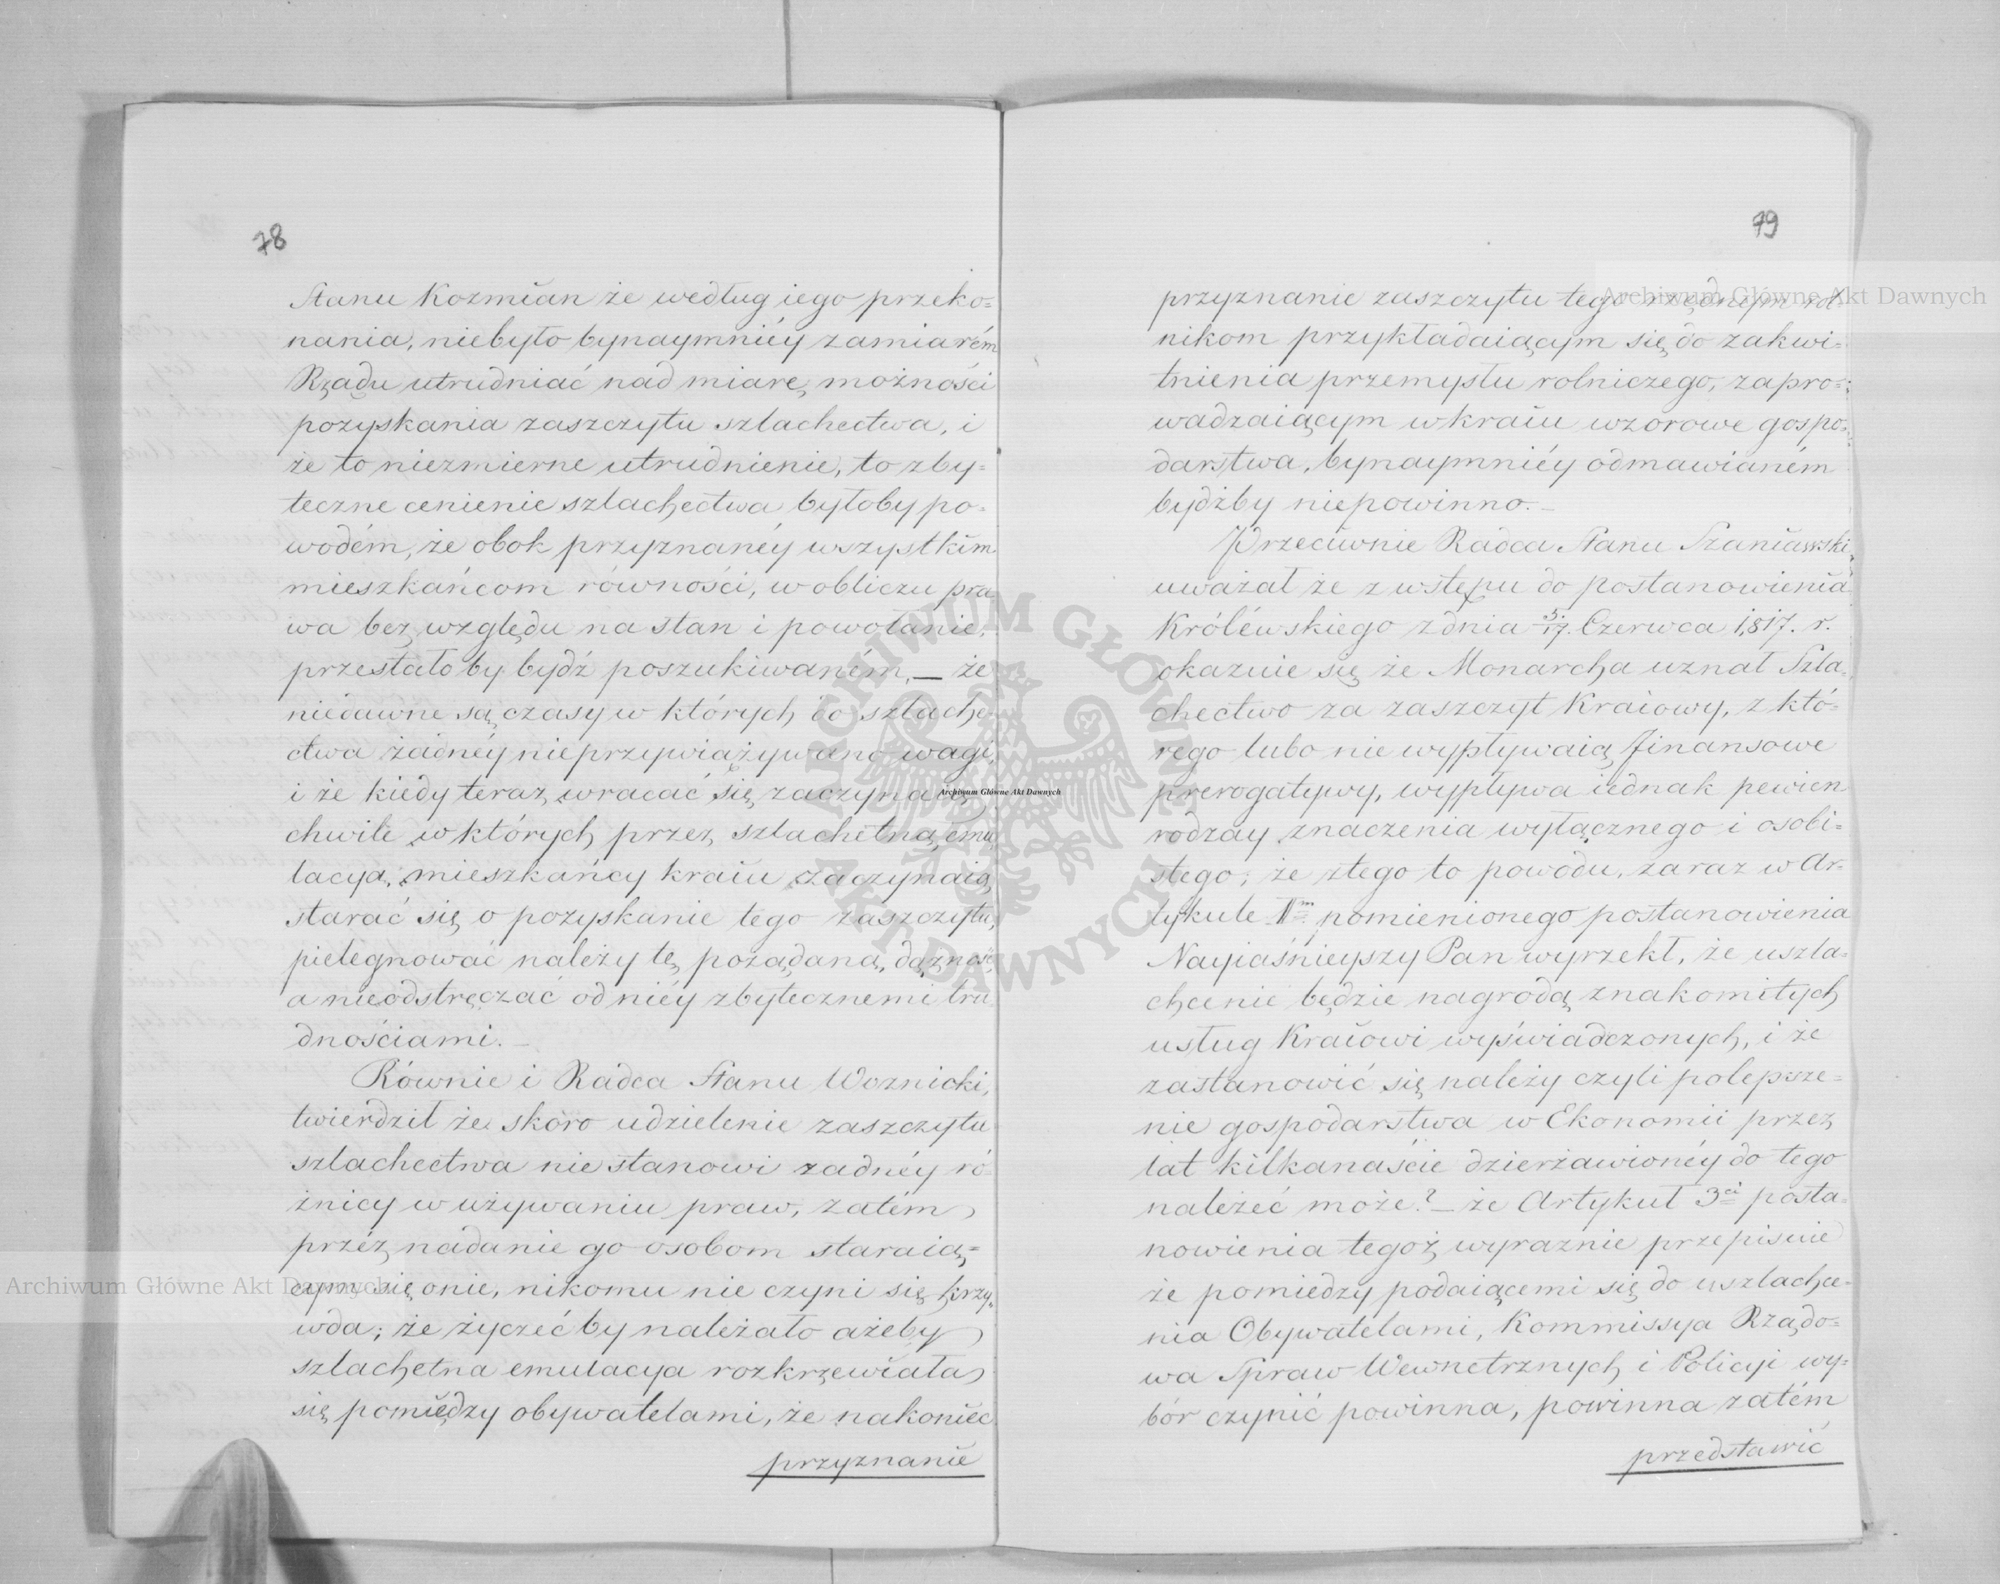 78
Stanu Kozmian że według iego przeko=
nania, niebyło bynaymniéy zamiarém
Rządu utrudniać nad miarę możności
pozyskania zaszczytu szlachectwa, i
że to niezmierne utrudnienie, to zby=
teczne cenienie szlachectwa byłoby po=
wodém, że obok przyznanéy wszystkim
mieszkańcom równości, w obliczu pra
wa bez względu na stan i powołanie,
przestałoby bydź poszukiwaném, — że
niedawne są czasy w których do szlache
ctwa żadnéy nieprzywiązywano wagi,
i że kiedy teraz wracać się zaczynaią
chwile w których przez szlachetną emu
lacyą, mieszkańcy kraiu zaczynaią
starać się o pozyskanie tego zaszczytu,
pielęgnować należy tę pożądaną dążność,
a nieodstręczać od niéy zbytecznemi tru
dnościami. —
Równie i Radca Stanu Woznicki,
twierdził że skoro udzielenie zaszczytu
szlachectwa nie stanowi żadnéy ró=
żnicy w używaniu praw, zatém
przéz nadanie go osobom staraią=
cym się onie, nikomu nie czyni się krzy=
wda; że życzéć by należało ażeby
szlachetna emulacya rozkrzewiała
się pomiędzy obywatelami, że nakoniec
przyznanie
79
przyznanie zaszczytu tego rządnym rol=
nikom przykładaiącym się do zakwi=
tnienia przemysłu rolniczego, zapro=
wadzaiącym w kraiu wzorowe gospo=
darstwa, bynaymniéy odmawianém
bydźby niepowinno. —
Przeciwnie Radca Stanu Szaniawski
uważał że z wstępu do postanowienia
Królewskiego z dnia 5/17. Czerwca 1,817. r.
okazuie się że Monarcha uznał Szla=
chectwo za zaszczyt Kraiowy, z któ=
rego lubo nie wypływaią finansowe
prerogatywy, wypływa iednak pewien
rodzay znaczenia wyłącznego i osobi=
stego; że ztego to powodu, zaraz w Ar=
tykule 1m pomienionego postanowienia
Nayiaśnieyszy Pan wyrzekł, że uszla=
chcenie będzie nagrodą znakomitych
usług Kraiowi wyświadczonych, i że
zastanowić się należy czyli polepsze=
nie gospodarstwa w Ekonomii przez
lat kilkanaście dzierżawionéy do tego
należeć może? — że Artykuł 3ci posta=
nowienia tegoż wyraznie przepisuie
że pomiedzy podaiącemi się do uszlachce=
nia Obywatelami, Kommissya Rządo=
wa Spraw Wewnetrznych i Policyi wy=
bór czynić powinna, powinna zatém
przedstawić
Archiwum Główne Akt Dawnych
Archiwum Główne Akt Dawnych
Archiwum Główne Akt Dawnych
ARCHIWUM GŁÓWNE AKT DAWNYCH